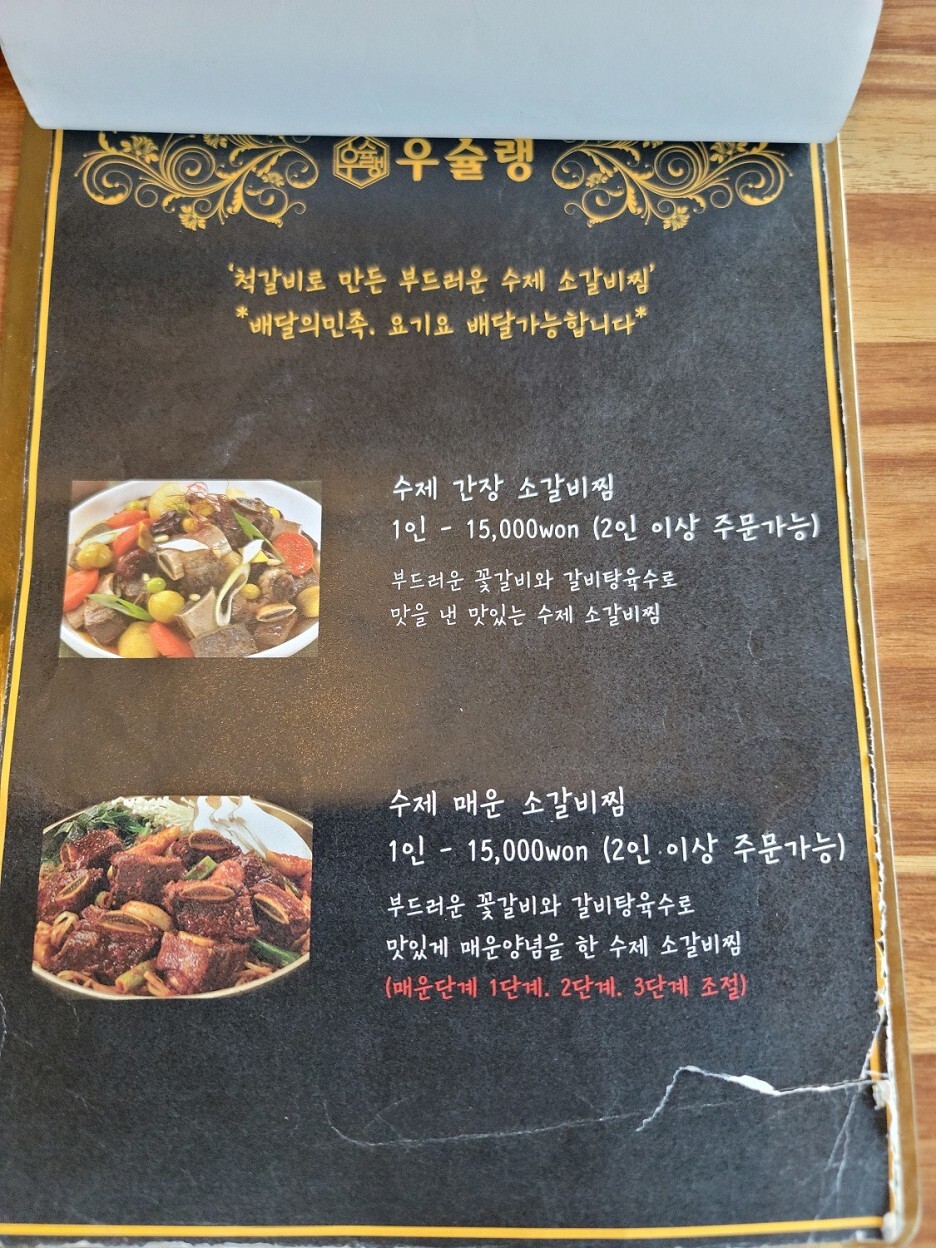 우슐랭 우슐랭
'척갈비로 만든 부드러운 수제 소갈비찜'
*배달의민족. 요기요 배달가능합니다*
수제 간장 소갈비찜
1인 - 15,000won (2인 이상 주문가능)
부드러운 꽃갈비와 갈비탕육수로
맛을 낸 맛있는 수제 소갈비찜
수제 매운 소갈비찜
1인 - 15,000won (2인 이상 주문가능)
부드러운 꽃갈비와 갈비탕육수로
맛있게 매운양념을 한 수제 소갈비찜
(매운단계 1단계. 2단계. 3단계 조절)